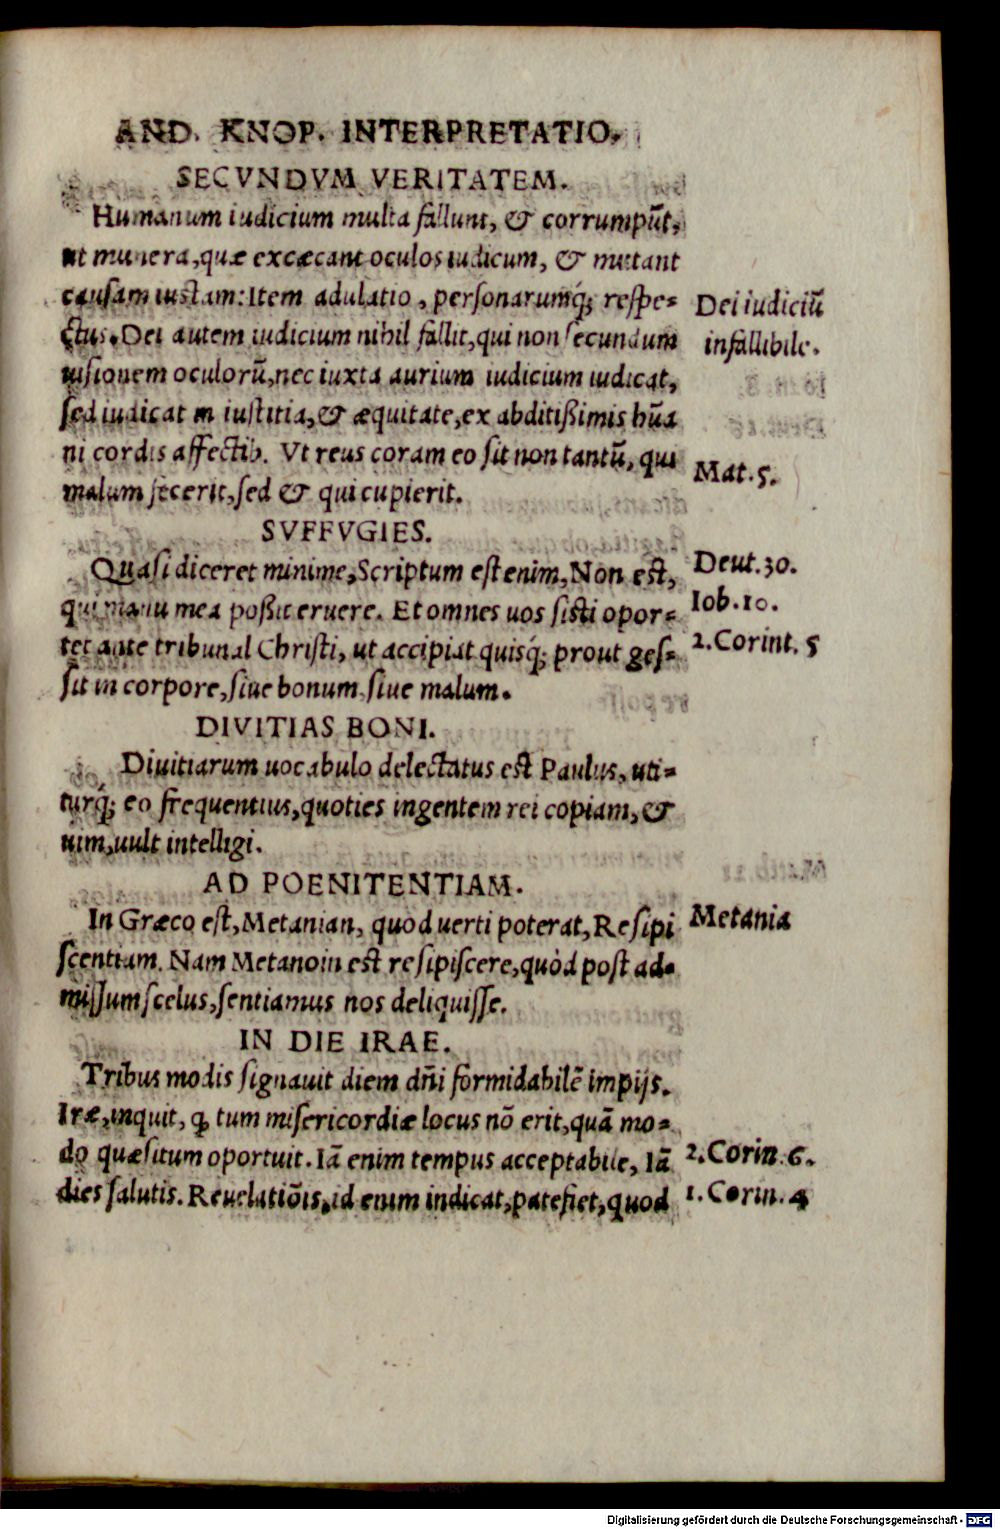 AND. KNOP. INTERPRETATIO.
SECVNDVM VERITATEM.
Humanum iudicium multa fallunt, & corrumpūt,
ut munera, quæ excæcant oculos iudicum, & mutant
causam iustam: Item adulatio, personarumq́; respe-
ctus. Dei autem iudicium nihil fallit, qui non secundum
Dei iudiciū
infallibile.
uisionem oculorū, nec iuxta aurium iudicium iudicat,
sed iudicat in iustitia, & æquitate, ex abditißimis hūa
ni cordis affectib. Vt reus coram eo sit non tantū, qui
Mat. 5.
malum fecerit, sed & qui cupierit.
SVFFVGIES.
Quasi diceret minime, Scriptum est enim, Non est,
Deut. 30.
qui manu mea poßit eruere. Et omnes uos sisti opor-
Iob. 10.
tet ante tribunal Christi, ut accipiat quisq́; prout ges-
2. Corint. 5
sit in corpore, siue bonum siue malum.
DIVITIAS BONI.
Diuitiarum uocabulo delectatus est Paulus, uti-
turq́; eo frequentius, quoties ingentem rei copiam, &
uim, uult intelligi.
AD POENITENTIAM.
In Græco est, Metanian, quod uerti poterat, Resipi
Metania
scentiam. Nam Metanoin est resipiscere, quòd post ad-
missum scelus, sentiamus nos deliquisse.
IN DIE IRAE.
Tribus modis signauit diem dñi formidabilē impijs.
Iræ, inquit, ꝙ tum misericordiæ locus nō erit, quā mo-
do quæsitum oportuit. Iā enim tempus acceptabile, Iā
2. Corin. 6.
dies salutis. Reuelatiōis, id enim indicat, patefiet, quod
1. Corin. 4
Digitalisierung gefördert durch die Deutsche Forschungsgemeinschaft - DFG